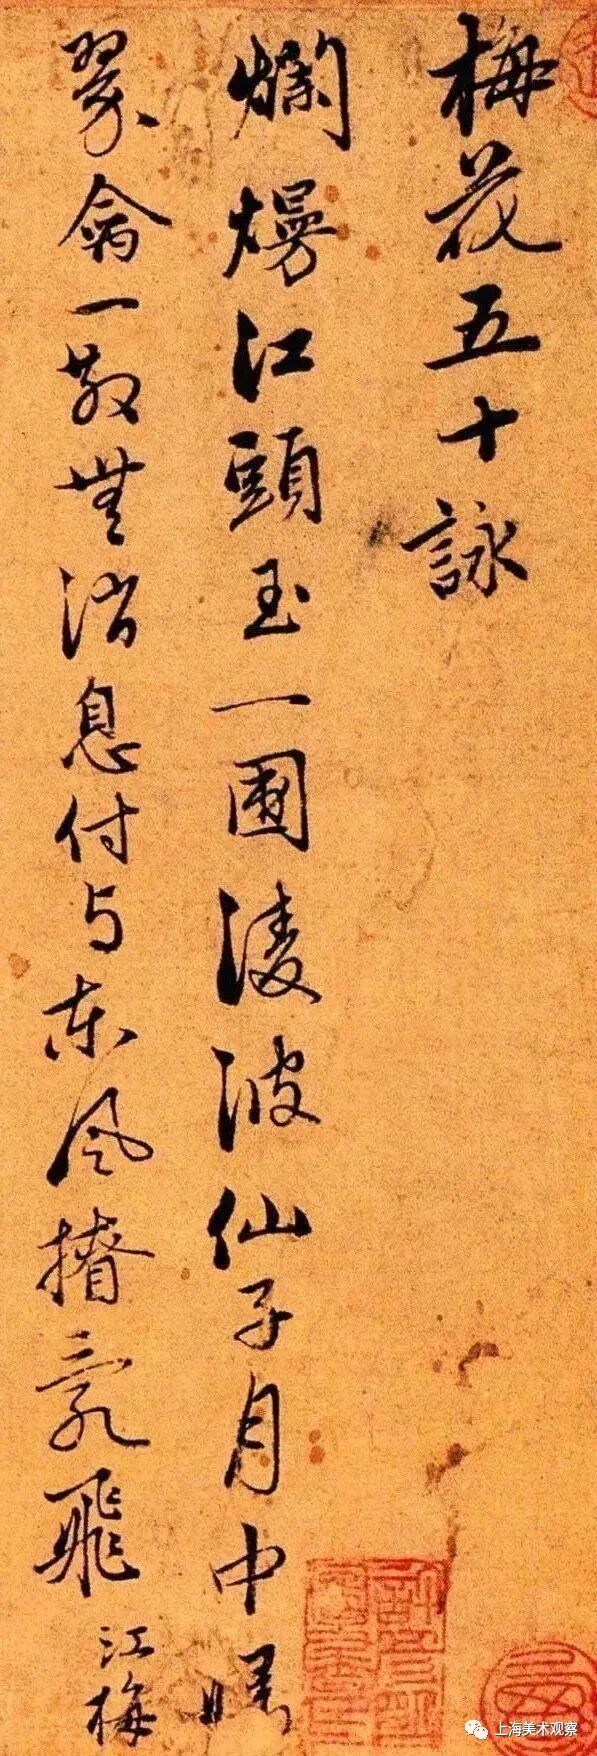 梅花五十詠
爛熳江頭玉一圍凌波仙子月中歸
翠禽一散無消息付与東風亂飛
江梅
上海美术观察